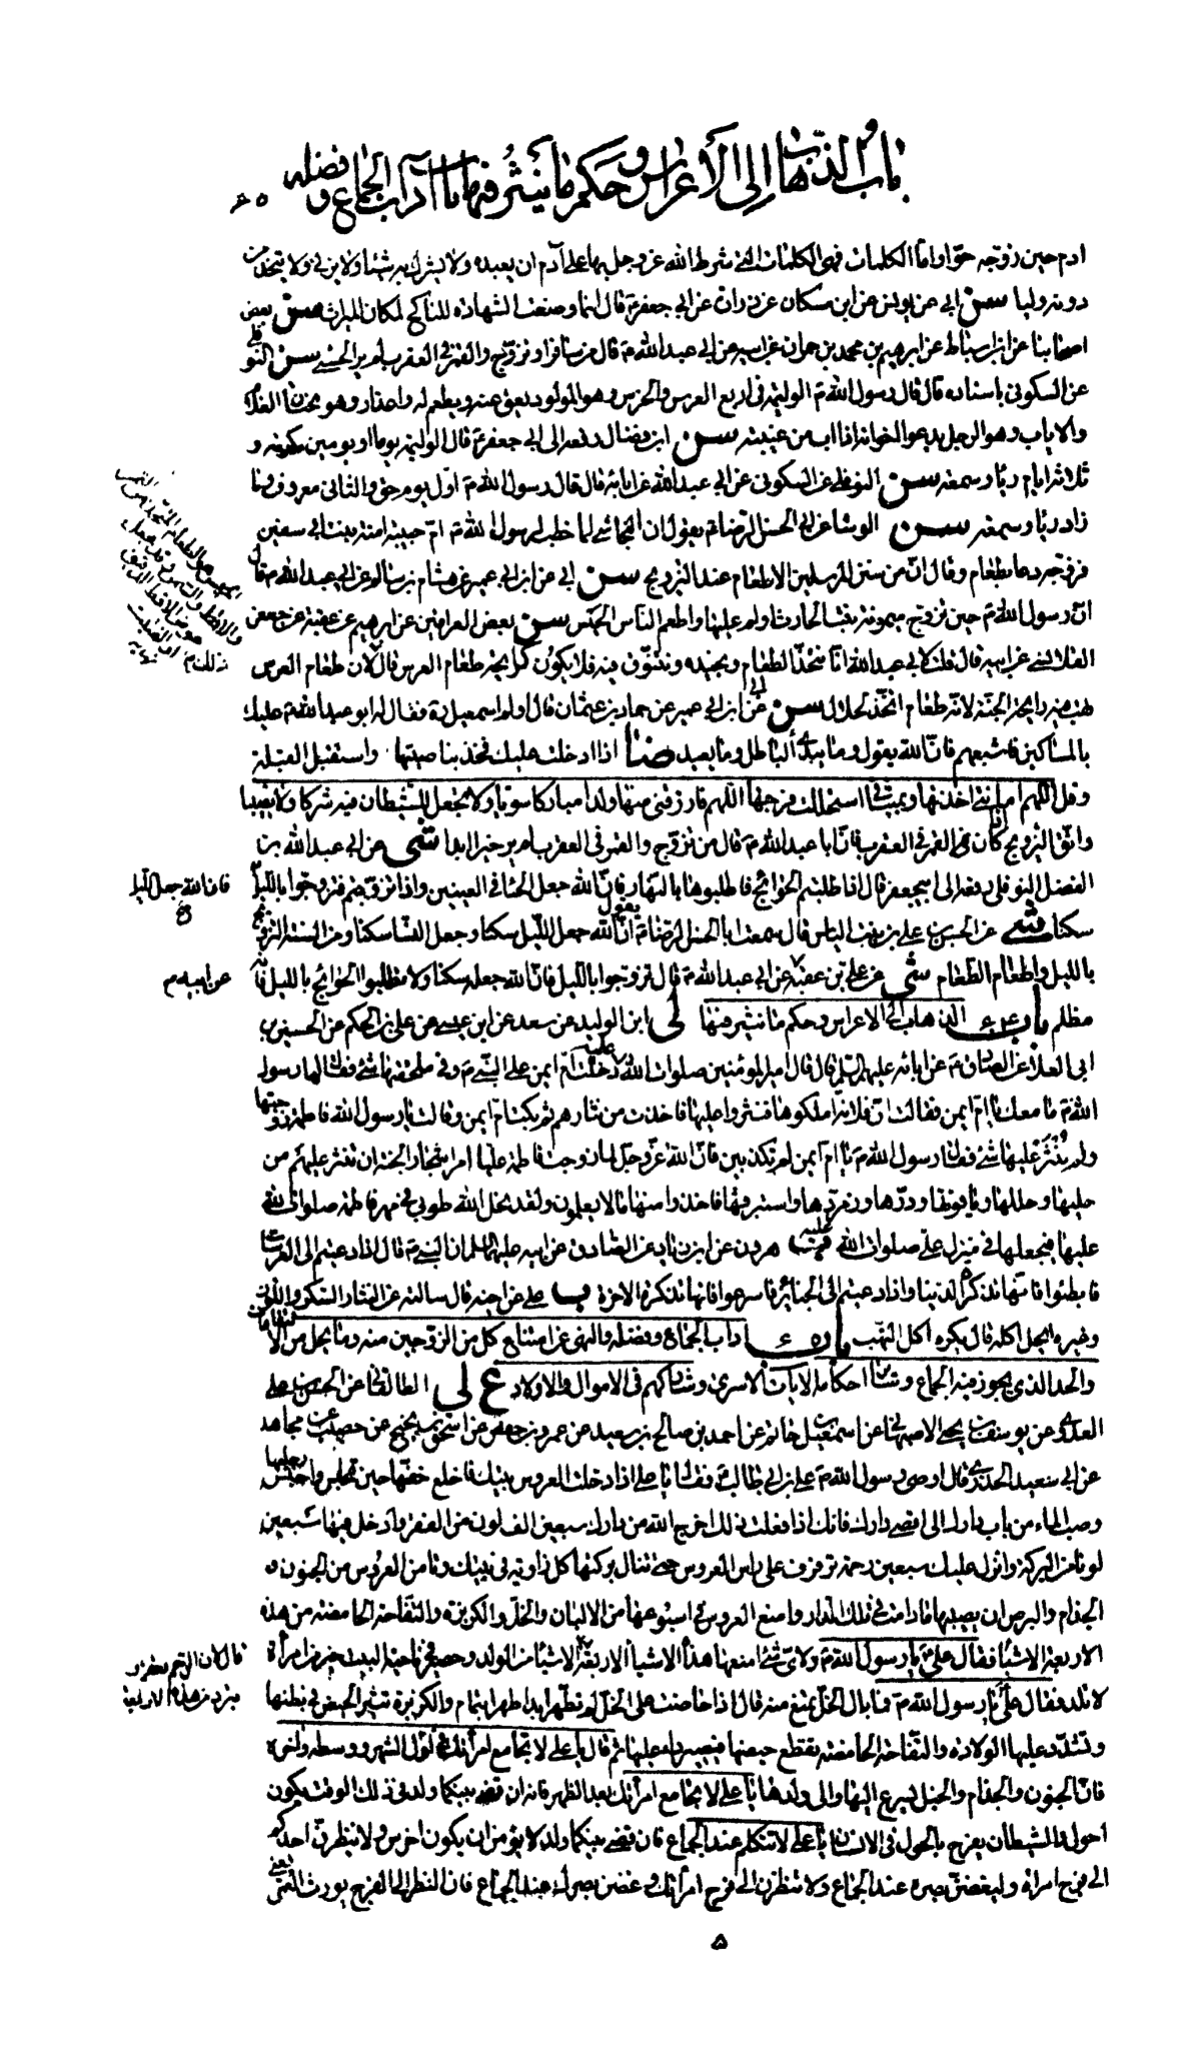 باب الذهاب إلى الأعراس وحكم ما ينثر فيها باب آداب الجماع وفضله
ادم حين زوجه حوا واما الكلمات فهى الكلمات التى شرط الله عز وجل بها على آدم ان يعبده ولا يشرك به شيئا ولا يزنى ولا يتخذ من
دونه وليا سن ابى عن يونس عن ابن مسكان عن زرارة عن ابى جعفر ع قال انما وضعت الشهادة للناكح لمكان الميراث سن بعض
اصحابنا عن ابن اسباط عن ابرهيم بن محمد بن حمران عن ابيه عن ابى عبدالله ع قال من سافر او تزوج والقمر فى العقرب لم ير الحسنى سن النوفلى
عن السكونى باسناده قال قال رسول الله ص الوليمة فى اربع العرس والخرس وهو المولود يعق عنه ويطعم له واعذار وهو ختان الغلام
والاياب وهو الرجل يدعو اخوانه اذا اب من غيبته سن ابن فضال رفعه الى ابى جعفر ع قال الوليمة يوما او يومين مكرمة و
ثلاثة ايام رياء وسمعة سن النوفلى عن السكونى عن ابى عبدالله عن ابائه قال قال رسول الله ص اول يوم حق والثانى معروف وما
زاد رياء وسمعة سن الوشا عن ابى الحسن الرضا ع يقول ان النجاشى لما خطب لرسول الله ص ام حبيبة امنة بنت ابى سفين
فزوجه دعا بطعام وقال ان من سنن المرسلين الاطعام عند التزويج سن ابى عن ابن ابى عمير عن هشام بن سالم عن ابى عبدالله ع قال
ان رسول الله ص حين تزوج ميمونة بنت الحارث اولم عليها واطعم الناس الحيس سن بعض العراقين عن ابرهيم عن عقبة عن جعفر
القلانسى عن ابيه قال قلت لابى عبدالله انا نتخذ الطعام ونجيده ونتنوق فيه فلا يكون كرائحة طعام العرس قال لان طعام العرس
تهب فيه رايحة الجنة لانه طعام اتخذ لحلال سن ابى عن ابن ابى عمير عن حماد بن عثمان قال اولم اسمعيل ره فقال له ابو عبدالله ع عليك
بالمساكين فاشبعهم فان الله يقول وما يبدئ الباطل وما يعيد ضا اذا ادخلت عليك فخذ بناصيتها واستقبل القبلة
وقل اللهم بامانتك اخذتها وبميثاقك استحللت فرجها اللهم فارزقنى منها ولدا مباركا سويا ولا تجعل للشيطان فيه شركا ولا نصيبا
واتق التزويج اذا كان القمر فى العقرب فان ابا عبدالله ع قال من تزوج والقمر فى العقرب لم ير خيرا ابدا شى عن ابى عبدالله بن
الفضل النوفلى رفعه الى ابيجعفر قال اذا طلبتم الحوائج فاطلبوها بالنهار فان الله جعل الحيا فى العينين واذا تزوجتم فتزوجوا بالليل
فان الله جعل الليل
سكنا شى عن الحسن بن على بن بنت الياس قال سمعت ابا الحسن الرضا ع يقول ان الله جعل الليل سكنا وجعل النسا سكنا ومن السنة التزويج
بالليل واطعام الطعام شى عن على بن عقبة عن ابى عبدالله ع قال تزوجوا بالليل فان الله جعله سكنا ولا تطلبوا الحوائج بالليل فانه
عن ابيه
مظلم باب الذهاب الى الاعراس وحكم ما ينثر فيها لى ابن الوليد عن سعد عن ابن عيسى عن على بن الحكم عن الحسين بن
ابى العلا عن الصادق ع عن ابائه عليهم السلم قال قال امير المؤمنين صلوات الله عليه دخلت ام ايمن على النبى ص وفى ملحفتها شئ فقال لها رسول
الله ص ما معك يا ام ايمن فقالت ان فلانة املكوها فنثروا عليها فاخذت من نثارهم ثم بكت ام ايمن وقالت يا رسول الله فاطمة زوجتها
ولم تنثر عليها شئ فقال رسول الله ص يا ام ايمن لم تكذبين فان الله عز وجل لما زوجت فاطمة عليا امر اشجار الجنة ان تنثر عليهم من
حليها وحللها وياقوتها ودرها وزمردها واستبرقها فاخذوا منها ما لا يعلمون ولقد نحل الله طوبى فى مهر فاطمة صلوات الله
عليها فجعلها فى منزل على صلوات الله عليه ب هرون عن ابن زياد عن الصادق عن ابيه عليهما السلم ان النبى ص قال اذا دعيتم الى العرسات
فابطئوا فانها تذكر الدنيا واذا دعيتم الى الجنائز فاسرعوا فانها تذكر الاخرة ب على عن اخيه قال سالته عن النثار السكر واللوز
وغيره ايحل اكله قال يكره اكل النهب باب اداب الجماع وفضله والنهى عن امتناع كل من الزوجين منه وما يحل من الانتفاعات
والحد الذى يجوز فيه الجماع وسائر احكامه الايات الاسرى وشاركهم فى الاموال والاولاد ع لى الطالقانى عن الحسن بن على
العدوى عن يوسف بن يحيى الاصبهانى عن اسمعيل بن حاتم عن احمد بن صالح بن سعيد عن عمرو بن حفص عن اسحق بن نجيح عن حصيب عن مجاهد
عن ابى سعيد الخدرى قال اوصى رسول الله ص على بن ابى طالب ع فقال يا على اذا دخلت العروس بيتك فاخلع خفها حين تجلس واغسل رجليها
وصب الماء من باب دارك الى اقصى دارك فانك اذا فعلت ذلك اخرج الله من دارك سبعين الف لون من الفقر وادخل فيها سبعين
لونا من البركة وانزل عليك سبعين رحمة ترفرف على راس العروس حتى تنال بركتها كل زاوية فى بيتك وتامن العروس من الجنون و
الجذام والبرص ان يصيبها ما دامت فى تلك الدار وامنع العروس فى اسبوعها من الالبان والخل والكزبرة والتفاحة الحامضة من هذه
الاربعة الاشيا فقال على ع يا رسول الله ص ولاى شئ امنعها هذه الاشيا الاربعة قال لان الرحم تعقر و تبرد من هذه الاربعة الاشيا من الولد وحصير فى ناحية البيت خير من امراة
لا تلد فقال على ع يا رسول الله ص وما بال الخل تمنع منه قال اذا حاضت على الخل لم تطهر ابدا طهرا بتمام والكزبرة تثير الحيض فى بطنها
وتشدد عليها الولادة والتفاحة الحامضة يقطع حيضها فيصير داء عليها ثم قال يا على لا تجامع امراتك فى اول الشهر ووسطه واخره
فان الجنون والجذام والخبل يسرع اليها والى ولدها يا على لا تجامع امراتك بعد الظهر فانه ان قضى بينكما ولد فى ذلك الوقت يكون
احول والشيطان يفرح بالحول فى الانسان يا على لا تتكلم عند الجماع فان قضى بينكما ولد لا يؤمن ان يكون اخرس ولا ينظرن احدكم
الى فرج امراته وليغضض بصره عند الجماع ولا تنظرن الى فرج امراتك وغض بصرك عند الجماع فان النظر الى الفرج يورث العمى